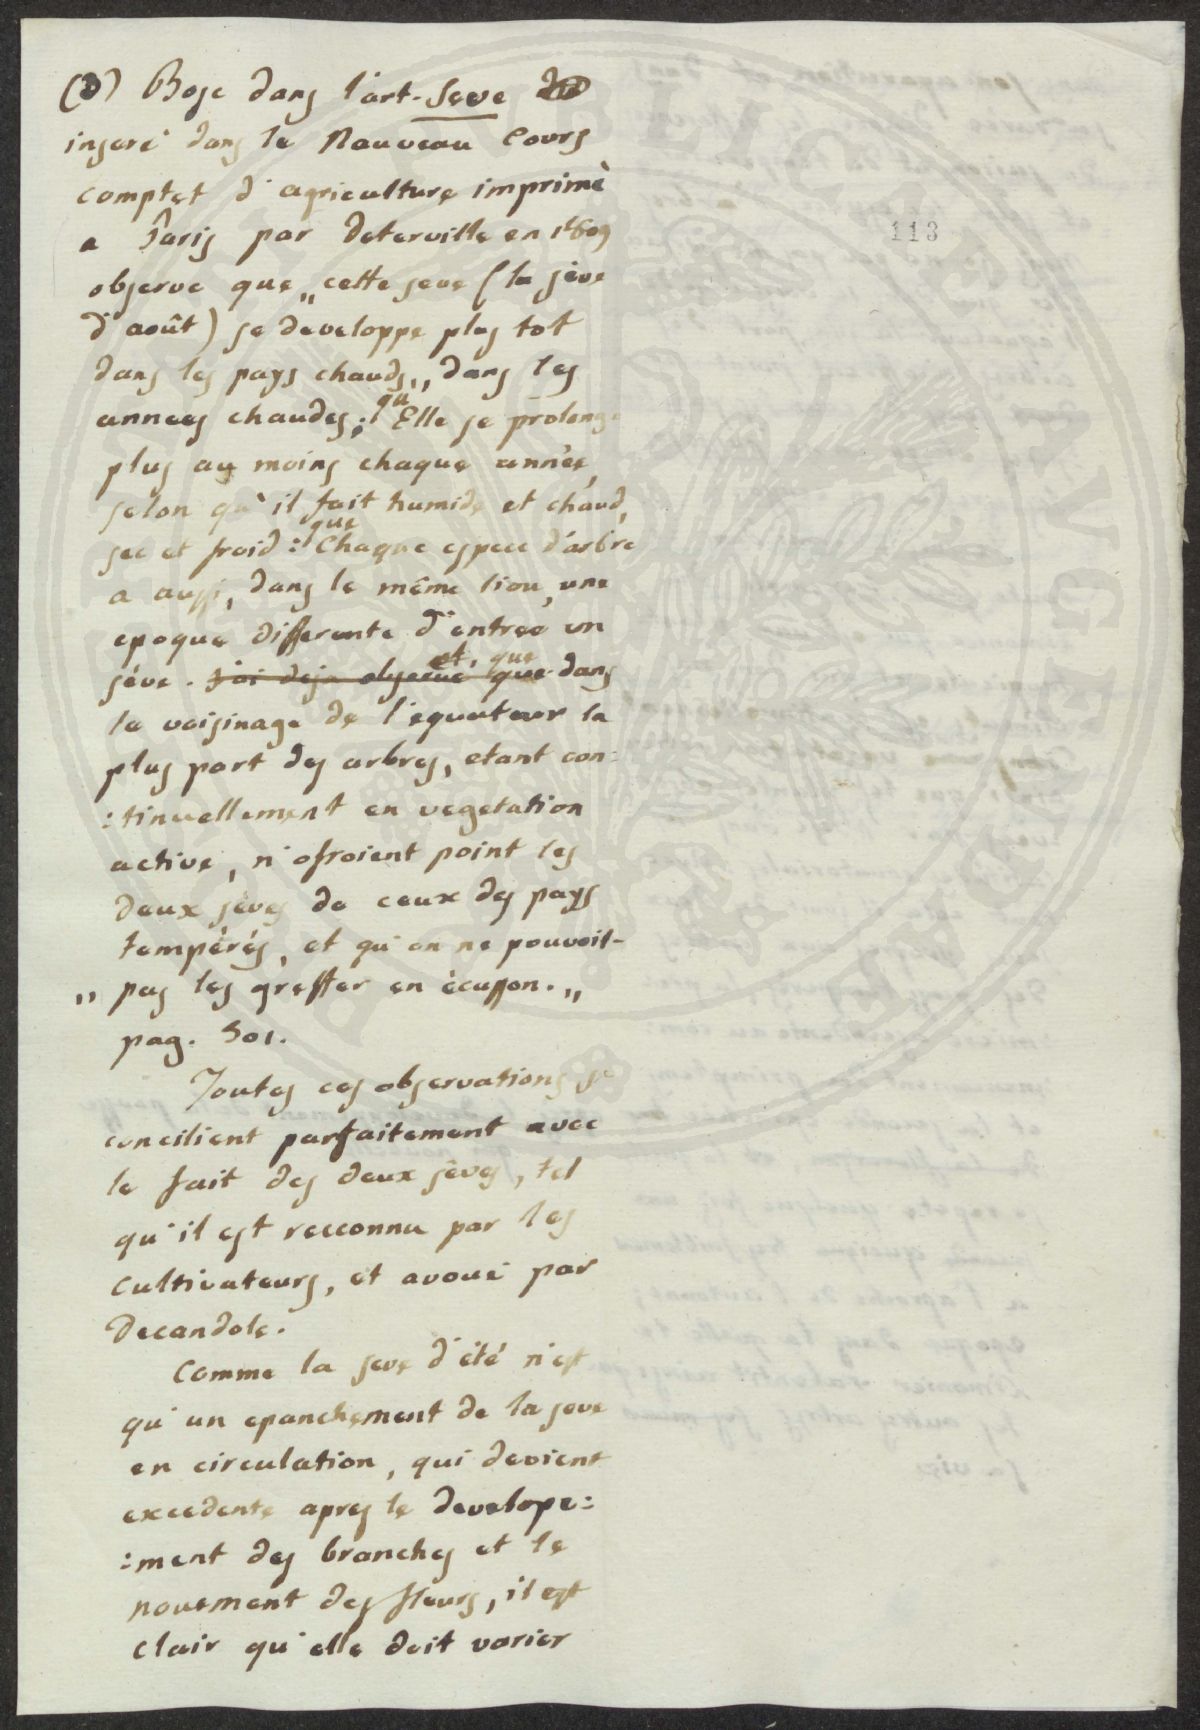 (d) Bosc dans l'art. Seve
inseré dans le Nauveau Cours
complet d'agriculture imprimè
a Paris par Deterville en 1809
observe que „cette seve (la sève
d'août) se developpe plus tot
dans les pays chauds,, dans les
années chaudes; qu'Elle se prolonge
plus au moins chaque année,
selon qu'il fait humide et chaud,
sec et froid: que Chaque espece d'arbre
a aussi, dans le même lieu, une
epoque differente d'entree en
séve. J'ai deja observé que et, que dans
le voisinage de l'equateur la
plus part des arbres, etant con:
:tinuellement en vegetation
active, n'ofroient point les
deux sèves de ceux des pays
tempérés, et qu'on ne pouvoit-
„ pas les greffer en écusson.„
pag. 301.
Toutes ces observations se
concilient parfaitement avec
le fait des deux sèves, tel
qu'il est recconnu par les
cultivateurs, et avoué par
Decandole.
Comme la seve d'été n'est
qu'un epanchement de la seve
en circulation, qui devient
excedente apres le develope:
:ment des branches et le
nouement des fleurs, il est
clair qu'elle doit varier
113